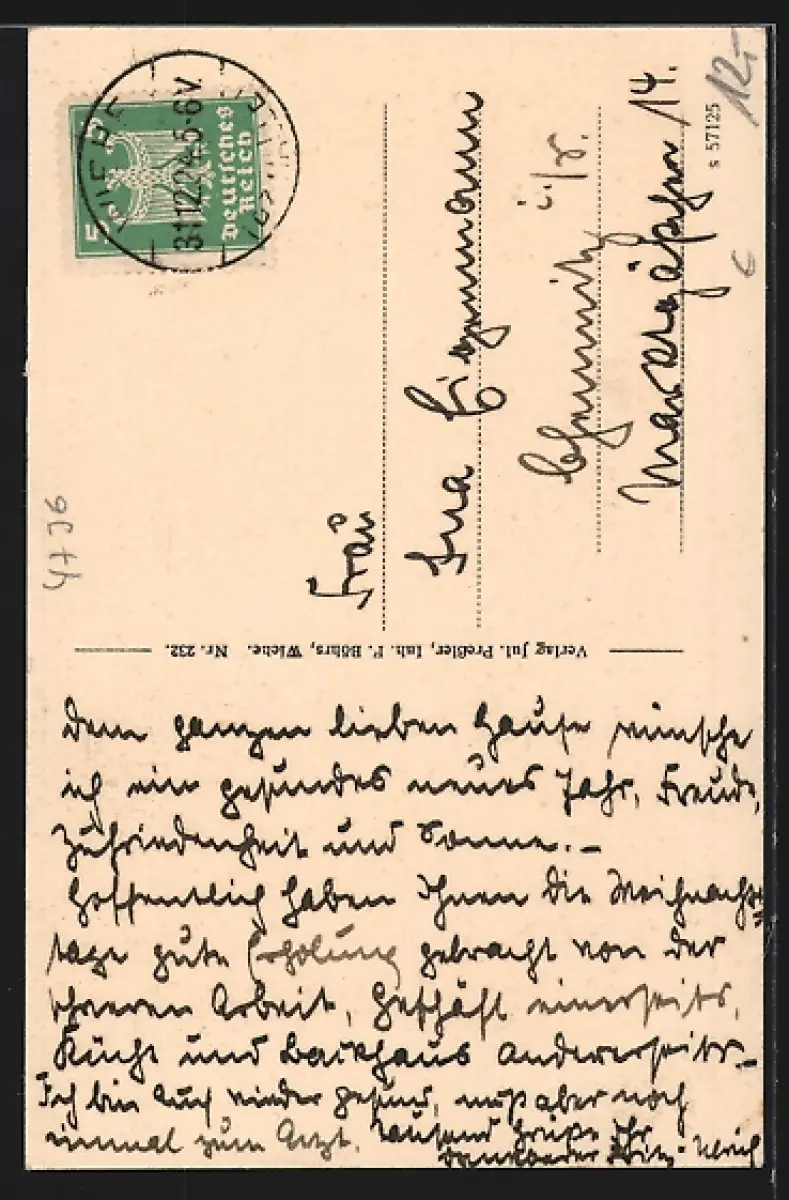 WIEHE
31.12.24.5-6V.
5
Deutsches
Reich
12,-
s 57125
Frau
Chemnitz i/S.
14.
Verlag Jul. Preßler, Inh. F. Böhrs, Wiehe. Nr. 232.
Dem ganzen lieben Hause wünsche
ich ein gesundes neues Jahr, Freude,
Zufriedenheit und Sonne. –
Hoffentlich haben Ihnen die Weihnachts=
tage gute Erholung gebracht von der
schweren Arbeit, Geschäft einerseits,
Küche und Backhaus andererseits. –
Ich bin auch wieder gesund, muß aber noch
einmal zum Arzt. Tausend Grüße Ihr
dankbarer